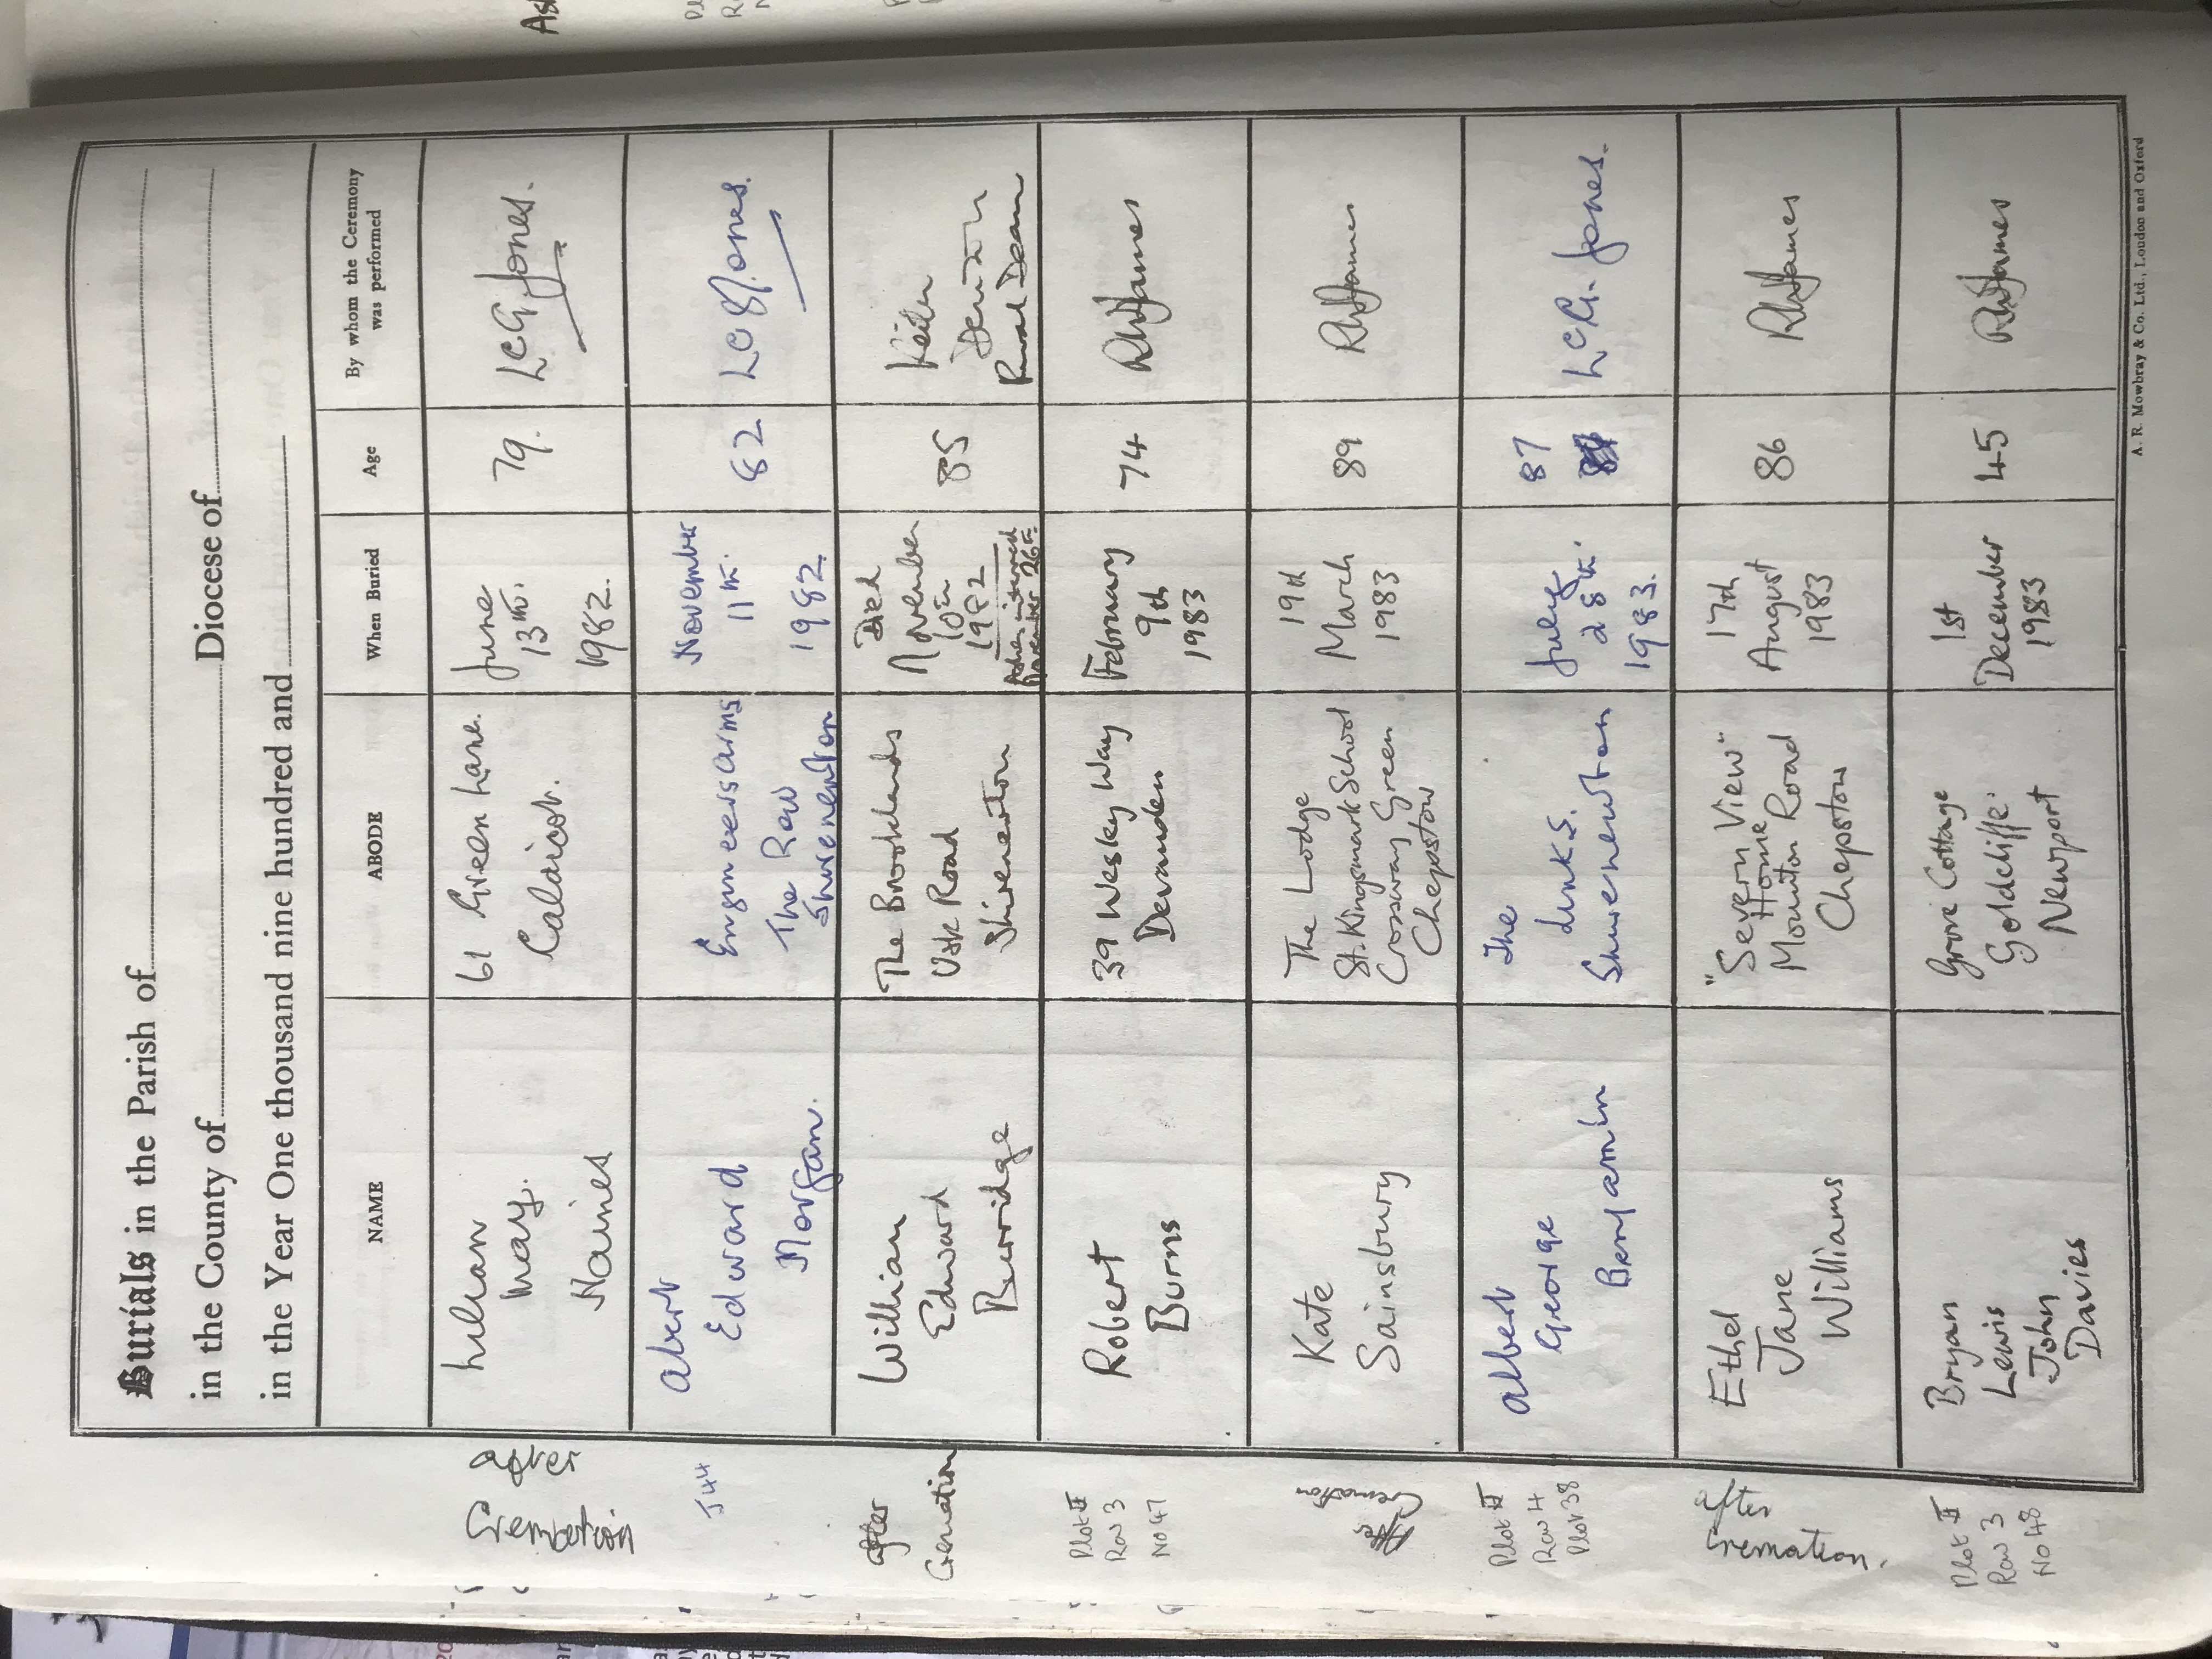 Burials in the Parish of
in the County of Diocese of
in the Year One thousand nine hundred and
NAME ABODE When Buried Age By whom the Ceremony was performed
after
Cremation
Lilian
May.
Haines
61 Green Lane.
Caldicot.
June
13th.
1982.
79.
LCG Jones.
J44
Albert
Edward
Morgan.
Engineers Arms
The Row
Shirenewton
November
11th.
1982.
82
LCG Jones.
after
Cremation
William
Edward
Berridge
The Brooklands
Usk Road
Shirenewton
Died
November
10th
1982
Ashes interred
November 26th
85
Keith
Denison
Rural Dean
Plot II
Row 3
No 47
Robert
Burns
39 Wesley Way
Devauden
February
9th
1983
74
RH James
Cremation
Kate
Sainsbury
The Lodge
St. Kingsmark School
Crossway Green
Chepstow
19th
March
1983
89
RH James
Plot II
Row 4
Plot 38
Albert
George
Benjamin
The
Links.
Shirenewton
July
28th.
1983.
87
LCG. Jones.
after
Cremation.
Ethel
Jane
Williams
"Severn View"
Home
Mounton Road
Chepstow
17th
August
1983
86
RH James
Plot II
Row 3
No 48
Bryan
Lewis
John
Davies
Grove Cottage
Goldcliffe.
Newport
1st
December
1983
45
RH James
A. R. Mowbray & Co. Ltd., London and Oxford